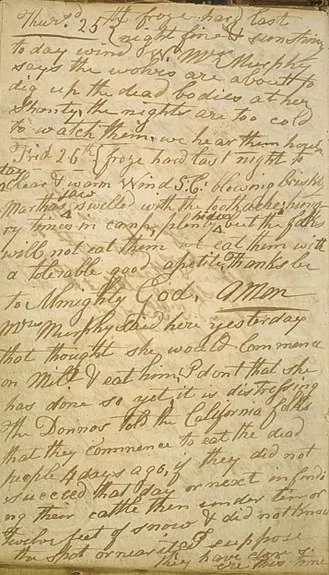 Thursd. 25th froze hard last
night fine & sunshiny
to day wind W. Mrs Murphy
says the wolves are about to
dig up the dead bodies at her
Shanty, the nights are too cold
to watch them, we hear them howl
Frid 26th froze hard last night to
day clear & warm Wind S.E: blowing briskly
Marthas jaw swelled with the toothache hung
ry times in camp, plenty hides but the folks
will not eat them we eat them with
a tolerable good apetite. Thanks be
to Almighty God. Amen
Mrs Murphy said here yesterday
that thought she would commence
on Milt. & eat him, I dont that she
has done so yet, it is distressing
The Donnos told the California folks
that they commence to eat the dead
people 4 days ago, if they did not
succeed that day or next in findi
ng their cattle then under ten or
twelve feet of snow & did not know
the spot or near it, I suppose
they have done so ere this time